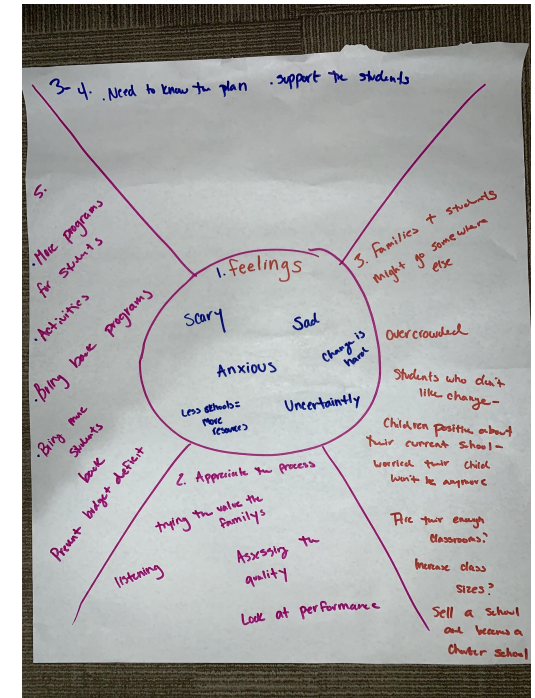 3-4. . Need to know the plan . support the students
5.
. More programs
for students
. Activities
. Bring back programs
. Bring more
students
back
Prevent budget deficit
1. Feelings
Scary
Sad
Anxious
Change is
hard
Less schools =
more
resources
Uncertaintly
3. Families + students
might go somewhere
else
Overcrowded
Students who don't
like change -
Children positive about
their current school -
worried their child
won't be anymore
Are their enough
classrooms?
Increase class
sizes?
Sell a school
and becomes a
Charter school
2. Appreciate the process
trying the value the
familys
listening
Assessing the
quality
Look at performance